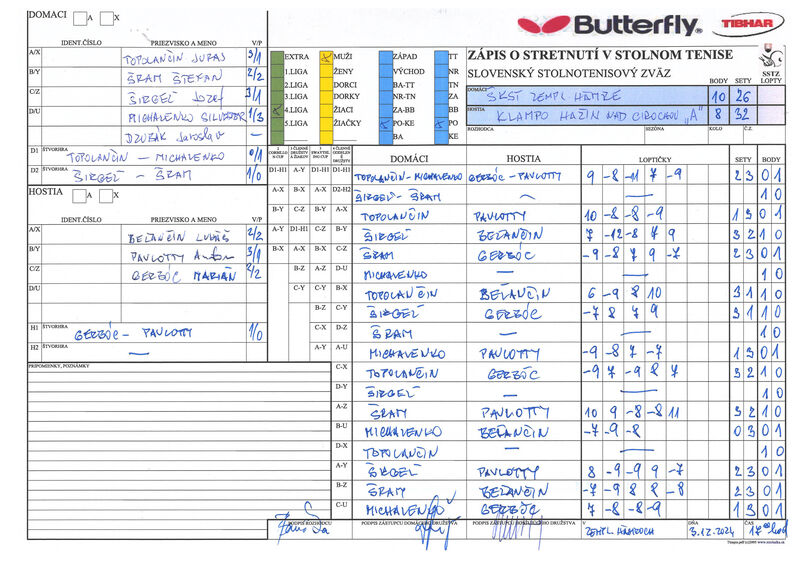 DOMÁCI A X
Butterfly TIBHAR
IDENT.ČÍSLO PRIEZVISKO A MENO V/P
A/X TOPOLANČIN JURAJ 3/1
B/Y ŠRAM ŠTEFAN 2/2
C/Z ŠIRGEĽ JOZEF 3/1
D/U MICHALENKO SILVESTER 1/3
DVORÁK Jaroslav —
D1 ŠTVORHRA TOPOLANČIN – MICHALENKO 0/1
D2 ŠTVORHRA ŠIRGEĽ – ŠRAM 1/0
HOSTIA A X
IDENT.ČÍSLO PRIEZVISKO A MENO V/P
A/X BEĽANČIN LUKÁŠ 2/2
B/Y PAVLOTTY Anton 3/1
C/Z GERBÓC MARIÁN 2/2
D/U
H1 ŠTVORHRA GERBÓC – PAVLOTTY 1/0
H2 ŠTVORHRA —
PRIPOMIENKY, POZNÁMKY
EXTRA MUŽI ZÁPAD TT
1.LIGA ŽENY VÝCHOD NR
2.LIGA DORCI BA-TT TN
3.LIGA DORKY NR-TN ZA
4.LIGA ŽIACI ZA-BB BB
5.LIGA ŽIAČKY PO-KE PO
BA KE
ZÁPIS O STRETNUTÍ V STOLNOM TENISE
SLOVENSKÝ STOLNOTENISOVÝ ZVÄZ SSTZ
BODY SETY LOPTY
DOMÁCI ŠKST ZEMPL. HÁMRE 10 26
HOSTIA KLAMPO HAŽÍN NAD CIROCHOU „A" 8 32
ROZHODCA SEZÓNA KOLO Č.Z.
DOMÁCI HOSTIA LOPTIČKY SETY BODY
D1-H1 A-Y D1-H1 D1-H1 TOPOLANČIN-MICHALENKO GERBÓC-PAVLOTTY 9 -8 -11 7 -9 2 3 0 1
A-X B-X A-X D2-H2 ŠIRGEĽ – ŠRAM — — 1 0
B-Y C-Z B-Y A-X TOPOLANČIN PAVLOTTY 10 -8 -8 -9 1 3 0 1
A-Y D1-H1 C-Z B-Y ŠIRGEĽ BEĽANČIN 7 -12 -8 7 9 3 2 1 0
B-X A-X B-X C-Z ŠRAM GERBÓC -9 -8 7 9 -7 2 3 0 1
B-Z A-Z D-U MICHALENKO — — 1 0
C-Y C-Y B-X TOPOLANČIN BEĽANČIN 6 -9 8 10 3 1 1 0
B-Z C-Y ŠIRGEĽ GERBÓC -7 8 7 9 3 1 1 0
C-X D-Z ŠRAM — — 1 0
A-Y A-U MICHALENKO PAVLOTTY -9 -8 7 -7 1 3 0 1
C-X TOPOLANČIN GERBÓC -9 7 -9 8 7 3 2 1 0
D-Y ŠIRGEĽ — — 1 0
A-Z ŠRAM PAVLOTTY 10 9 -8 -8 11 3 2 1 0
B-U MICHALENKO BEĽANČIN -7 -9 -8 0 3 0 1
D-X TOPOLANČIN — — 1 0
A-Y ŠIRGEĽ PAVLOTTY 8 -9 -9 9 -7 2 3 0 1
B-Z ŠRAM BEĽANČIN -7 -9 8 8 -8 2 3 0 1
C-U MICHALENKO GERBÓC 7 -8 -8 -9 1 3 0 1
PODPIS ROZHODCU PODPIS ZÁSTUPCU DOMÁCEHO DRUŽSTVA PODPIS ZÁSTUPCU HOSŤUJÚCEHO DRUŽSTVA V ZEMPL. HÁMROCH DŇA 3.12.2024 ČAS 17:00 hod